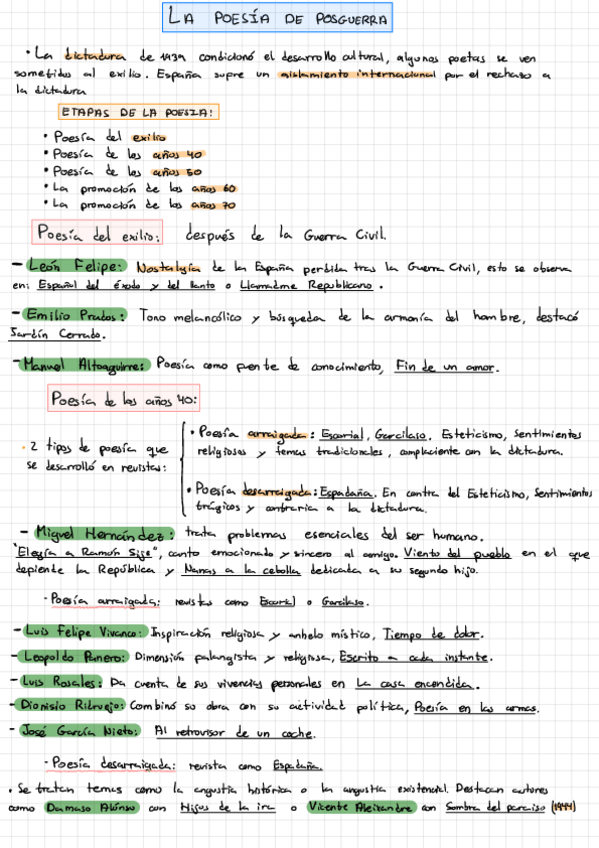 LA POESÍA DE POSGUERRA
• La dictadura de 1939 condicionó el desarrollo cultural, algunos poetas se ven
sometidos al exilio. España supre un aislamiento internacional por el rechazo a
la dictadura
ETAPAS DE LA POESIA:
• Poesía del exilio
• Poesía de los años 40
• Poesía de los años 50
• La promoción de los años 60
• La promoción de los años 70
Poesía del exilio: después de la Guerra Civil.
- León Felipe: Nostalgia de la España perdida tras la Guerra Civil, esto se observa
en: Español del éxodo y del llanto o Llamadme Republicano.
- Emilio Prados: Tono melancólico y búsqueda de la armonía del hombre, destacó
Jardín Cerrado.
- Manuel Altoaguirre: Poesía como puente de conocimiento, Fin de un amor.
Poesía de los años 40:
• 2 tipos de poesía que
se desarrolló en revistas:
• Poesía arraigada: Escorial, Garcilaso. Esteticismo, sentimientos
religiosos y temas tradicionales, complaciente con la dictadura.
• Poesía desarraigada: Espadaña. En contra del Esteticismo, sentimientos
trágicos y contraria a la dictadura.
- Miguel Hernández: trata problemas esenciales del ser humano.
"Elegía a Ramón Sije", canto emocionado y sincero al amigo. Viento del pueblo en el que
depiende la República y Nanas a la cebolla dedicada a su segundo hijo.
- Poesía arraigada: revistas como Escorial o Garcilaso.
- Luis Felipe Vivanco: Inspiración religiosa y anhelo místico, Tiempo de dolor.
- Leopoldo Panero: Dimensión palangista y religiosa, Escrito a cada instante.
- Luis Rosales: Da cuenta de sus vivencias personales en La casa encendida.
- Dionisio Ridruejo: Combinó su obra con su actividad política, Poesía en las armas.
- José García Nieto: Al retrovisor de un coche.
- Poesía desarraigada: revista como Espadaña.
• Se tratan temas como la angustia histórica o la angustia existencial. Destacan autores
como Damaso Alonso con Hijos de la ira o Vicente Aleixandre con Sombra del paraiso (1944)